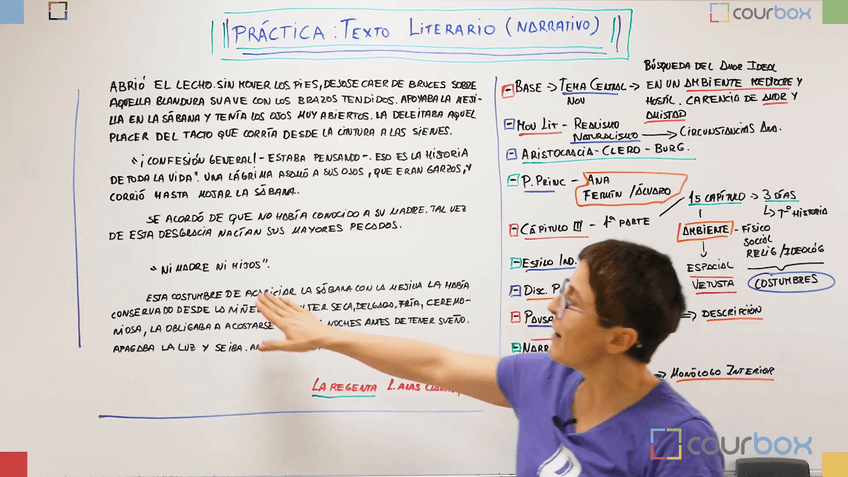 courbox
PRÁCTICA: TEXTO LITERARIO (NARRATIVO)
ABRIÓ EL LECHO. SIN MOVER LOS PIES, DEJOSE CAER DE BRUCES SOBRE
AQUELLA BLANDURA SUAVE CON LOS BRAZOS TENDIDOS. APOYABA LA MEJI-
LLA EN LA SÁBANA Y TENÍA LOS OJOS MUY ABIERTOS. LA DELEITABA AQUEL
PLACER DEL TACTO QUE CORRÍA DESDE LA CINTURA A LAS SIENES.
"¡CONFESIÓN GENERAL! - ESTABA PENSANDO -. ESO ES LA HISTORIA
DE TODA LA VIDA". UNA LÁGRIMA ASOMÓ A SUS OJOS, QUE ERAN GARZOS, Y
CORRIÓ HASTA MOJAR LA SÁBANA.
SE ACORDÓ DE QUE NO HABÍA CONOCIDO A SU MADRE. TAL VEZ
DE ESTA DESGRACIA NACÍAN SUS MAYORES PECADOS.
"NI MADRE NI HIJOS".
ESTA COSTUMBRE DE ACARICIAR LA SÁBANA CON LA MEJILLA LA HABÍA
CONSERVADO DESDE LA NIÑE SECA, DELGADO, FRÍA, CEREMO-
NIOSA, LA OBLIGABA A ACOSTARSE NOCHES ANTES DE TENER SUEÑO.
APAGABA LA LUZ Y SE IBA. AN
LA REGENTA L. ALAS CLAR
BÚSQUEDA DEL AMOR IDEAL
- BASE → TEMA CENTRAL → EN UN AMBIENTE MEDIOCRE Y
NOV HOSTIL. CARENCIA DE AMOR Y
AMISTAD
- MOV LIT - REALISMO
NATURALISMO → CIRCUNSTANCIAS ANA.
- ARISTOCRACIA - CLERO - BURG.
- P. PRINC - ANA
FERMÍN / ÁLVARO
15 CAPÍTULO → 3 DÍAS
↳ Tº HISTORIA
- CAPÍTULO III - 1ª PARTE
AMBIENTE - FÍSICO
SOCIAL
RELIG / IDEOLÓG
- ESTILO IND.
ESPACIAL
VETUSTA
COSTUMBRES
- DISC. P
- PAUSA → DESCRIPCIÓN
- NARR
→ MONÓLOGO INTERIOR
courbox